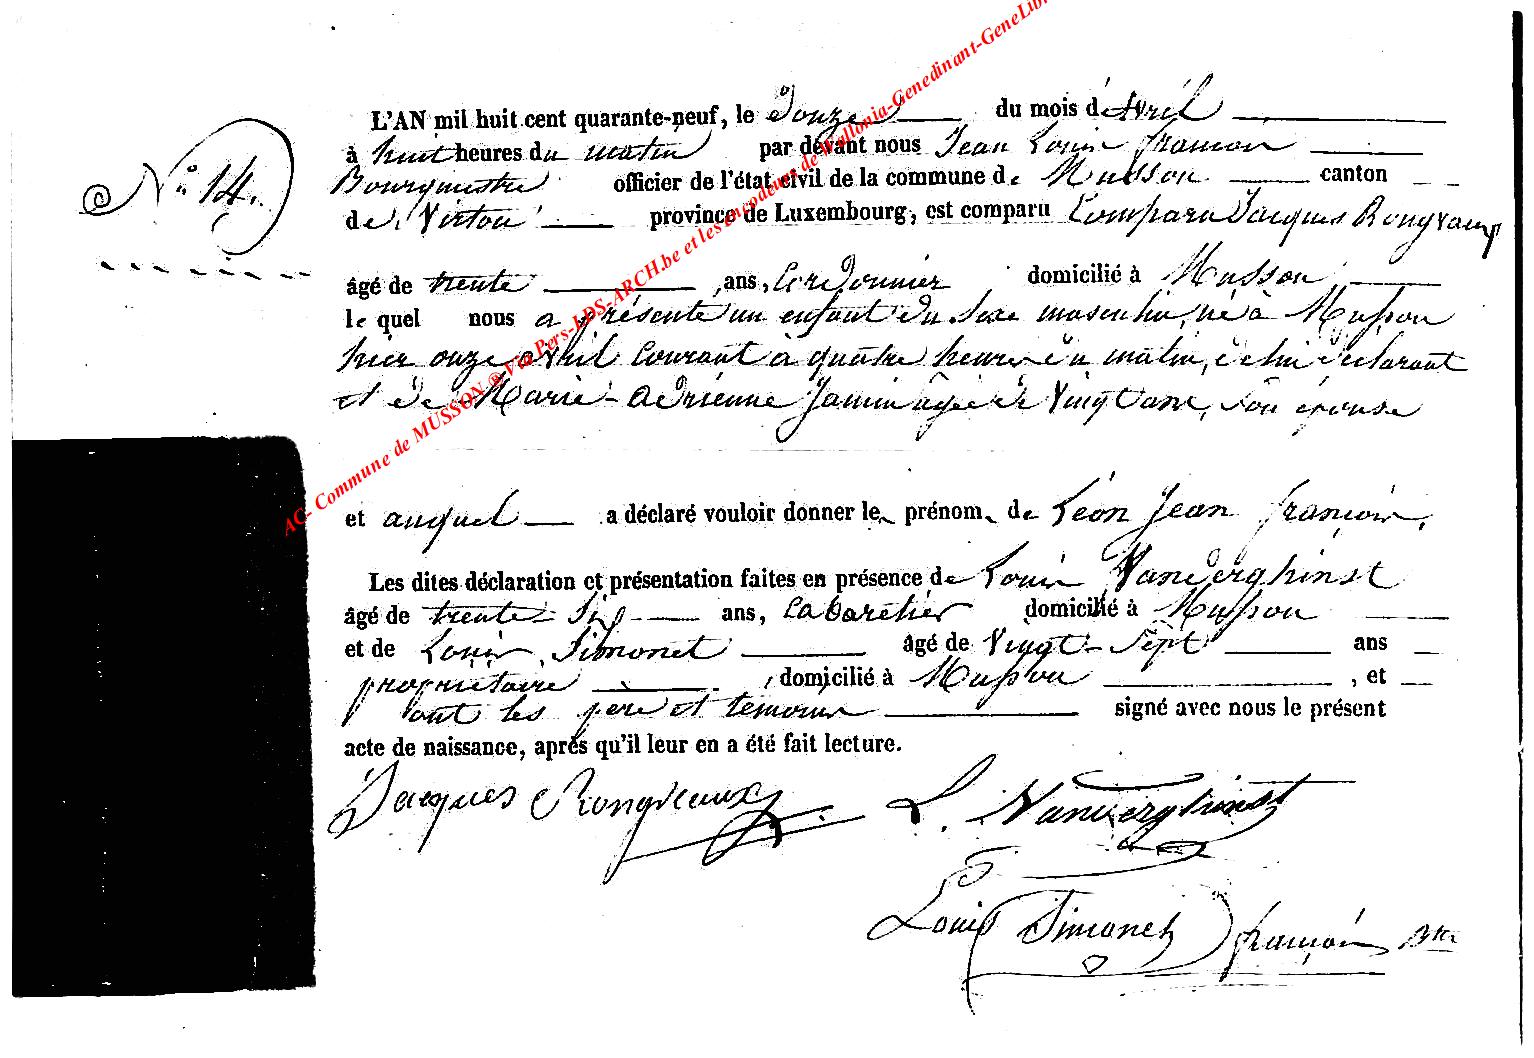 L'AN mil huit cent quarante-neuf, le Douze du mois d'Avril
à huit heures du matin par devant nous Jean Louis françois
N° 14. Bourgmestre officier de l'état civil de la commune de Musson canton
de Virton province de Luxembourg, est comparu Comparu Jacques Rongvaux
âgé de trente ans, Cordonnier domicilié à Musson
le quel nous a présenté un enfant du sexe masculin, né à Musson
hier onze avril Courant à quatre heures du matin, de lui déclarant
et de Marie-Adrienne Jamin âgée de Vingt ans, son épouse
et auquel a déclaré vouloir donner le prénom de Léon Jean françois,
Les dites déclaration et présentation faites en présence de Louis Vanverghinst
âgé de trente-six ans, Cabaretier domicilié à Musson
et de Louis Simonet âgé de Vingt-Sept ans
propriétaire, domicilié à Musson, et
ont les père et témoins signé avec nous le présent
acte de naissance, après qu'il leur en a été fait lecture.
Jacques Rongveaux L. Vanverghinst
Louis Simonet françois
AC- Commune de MUSSON ® Via Pers-LDS-ARCH.be et les encodeurs de Wallonia-Genedinant-GeneLib